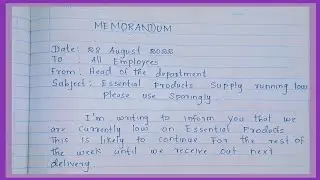 MEMORANDUM
Date: 28 August 2022
To : All Employees
From: Head of the department
Subject: Essential Products Supply running low
Please use Sparingly.
I'm writing to inform you that we
are currently low on Essential Products
This is likely to continue for the rest of
the week until we receive our next
delivery.